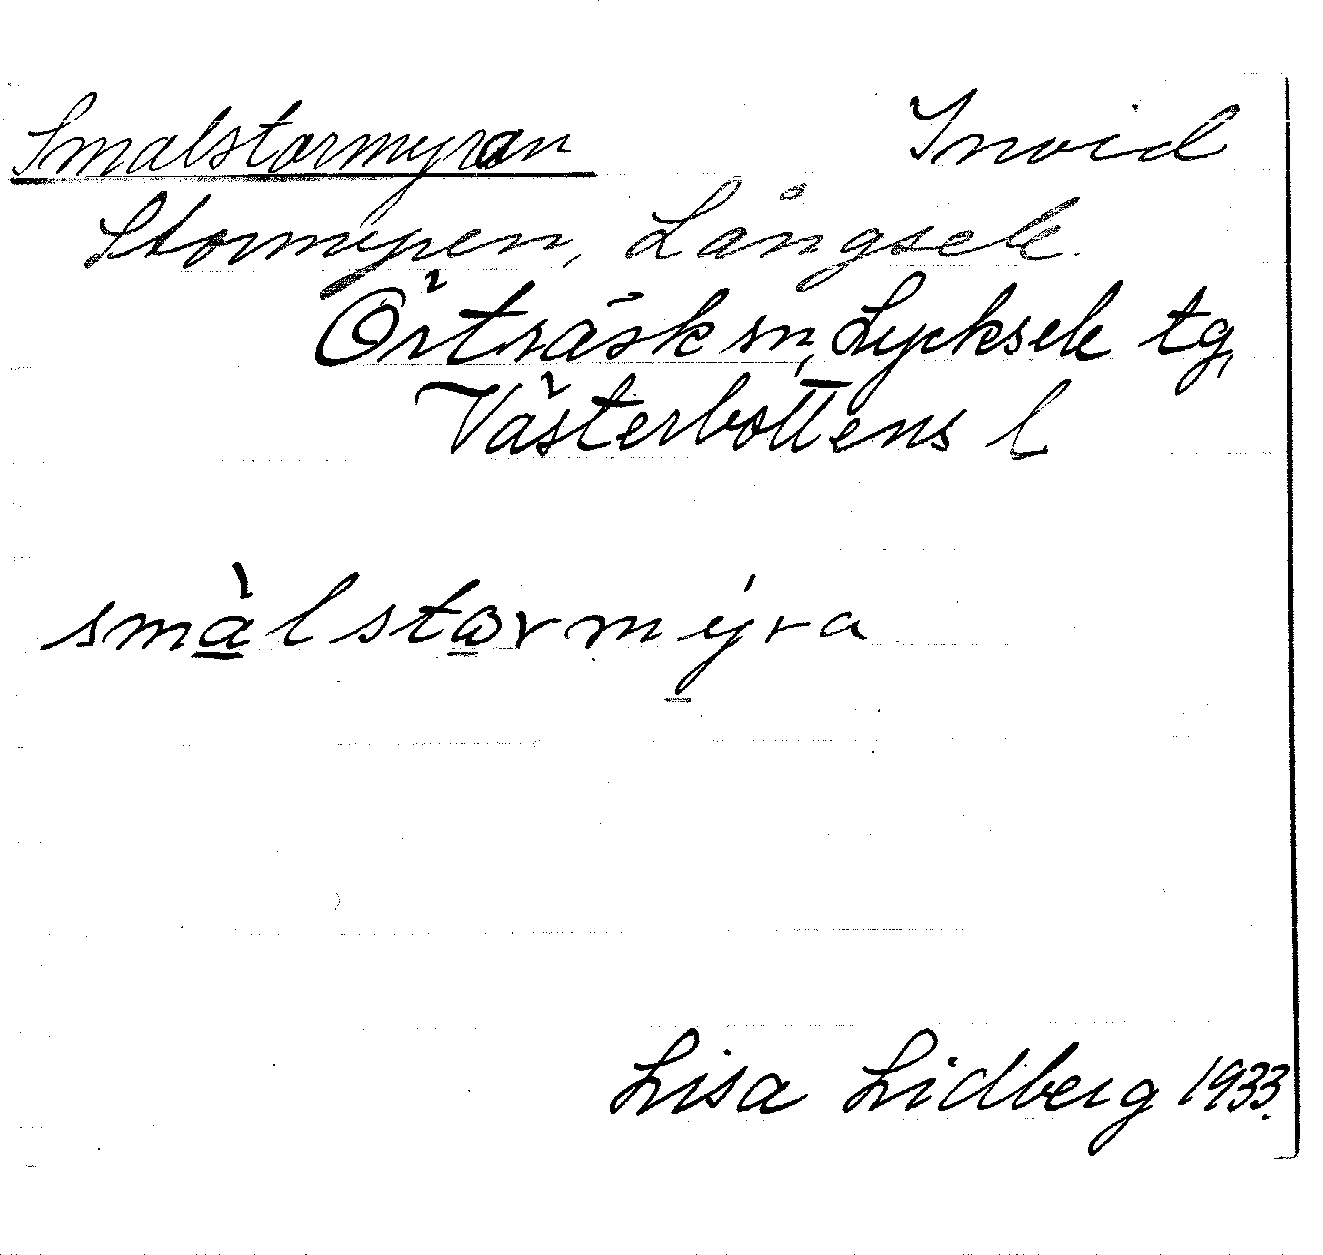 Smalstormyran Invid
Stormyren, Långsele
Örträsk sn, Lycksele tg,
Västerbottens l
smàlstormýra
Lisa Lidberg 1933.